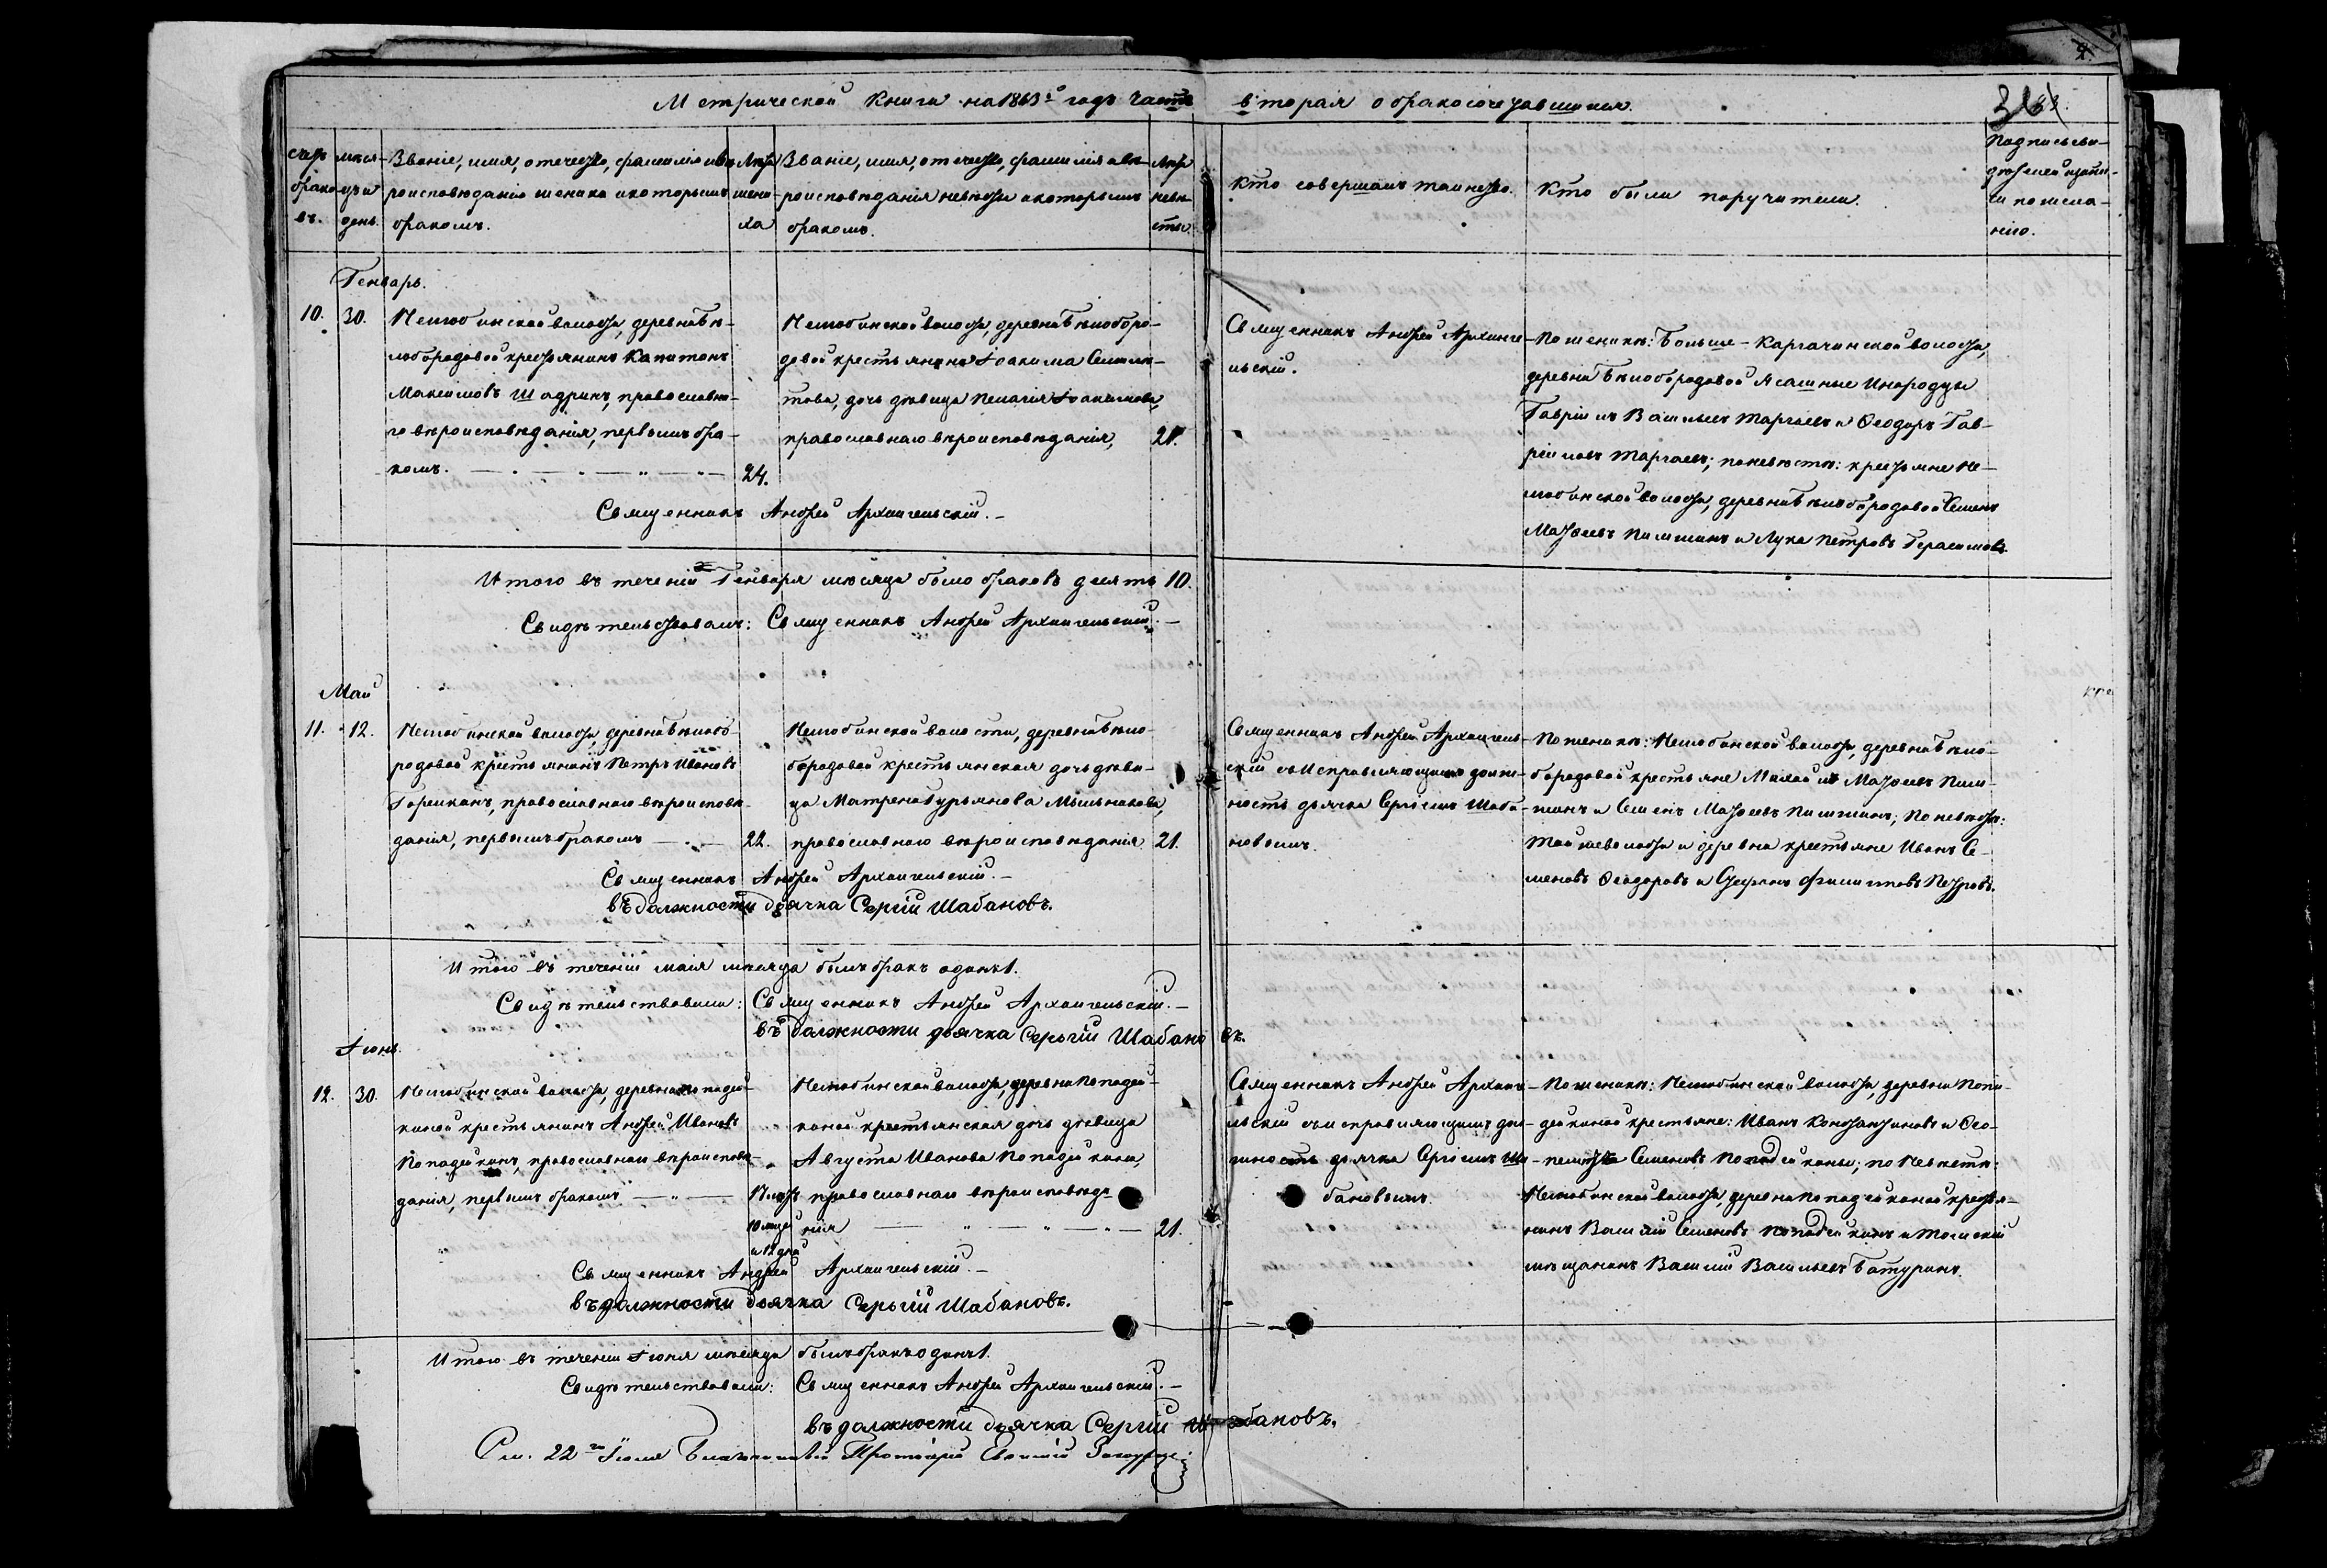 Метрической книги на 1863й годъ часть вторая о бракосочетавшихся.
Счетъ браковъ.
Месяцъ и день.
Званіе, имя, отечество, фамилія и вѣ-
роисповѣданіе жениха и которымъ
бракомъ.
Лѣта
жени-
ха
Званіе, имя, отечество, фамилія и вѣ-
роисповѣданія невѣсты и которымъ
бракомъ.
Лѣта
невѣ-
сты.
Кто совершалъ таинство.
Кто были поручители.
Подпись сви-
дѣтелей записи
по жела-
нію.
Генварь.
10. 30.
Нелюбинской волости, деревни Бѣ-
лобородовой крестьянинъ Капитонъ
Максимовъ Шадринъ, православна-
го вѣроисповѣданія, первымъ бра-
комъ. 24.
Нелюбинской волости, деревни Бѣлоборо-
довой крестьянина Іоакима
дочь дѣвица Пелагія Іоакимова,
православнаго вѣроисповѣданія, 21.
Священникъ Андрей Арханге-
льскій.
По женихѣ: Больше-Каргачинской волости,
деревни Бѣлобородовой Ясашные Инородцы
Гавріилъ Васильевъ Таргаевъ и Ѳеодоръ Гав-
ріиловъ Таргаевъ; по невѣстѣ: крестьяне Не-
любинской волости, деревни Бѣлобородовой Семенъ
Матвеевъ Пимшинъ и Лука Петровъ Герасимовъ.
Священникъ Андрей Архангельскій.
Итого въ теченіи Генваря мѣсяца было браковъ десять 10.
Свидѣтельствовалъ: Священникъ Андрей Архангельскій.
Май
11. 12.
Нелюбинской волости, деревни Бѣлобо-
родовой крестьянинъ Петръ Ивановъ
Горелкинъ, православнаго вѣроисповѣ-
данія, первымъ бракомъ 22.
Нелюбинской волости, деревни Бѣло-
бородовой крестьянская дочь дѣви-
ца Матрена Гурьянова Мыльникова,
православнаго вѣроисповѣданія 21.
Священникъ Андрей Архангель-
скій съ Исправляющимъ долж-
ность дьячка Сергіемъ Шаба-
новымъ.
По женихѣ: Нелюбинской волости, деревни Бѣло-
бородовой крестьяне Михаилъ Матвеевъ Пим-
шинъ и Семенъ Матвеевъ Пимшинъ; По невѣстѣ:
той же волости и деревни крестьяне Иванъ Се-
меновъ Ѳеодоровъ и Стефанъ Филиповъ Петровъ.
Священникъ Андрей Архангельскій.
въ должности дьячка Сергій Шабановъ.
Итого въ теченіи маія мѣсяца былъ бракъ одинъ 1.
Свидѣтельствовали: Священникъ Андрей Архангельскій.
въ должности дьячка Сергій Шабановъ.
Іюнь.
12. 30.
Нелюбинской волости, деревни Попадей-
киной крестьянинъ Андрей Ивановъ
Попадейкинъ, православнаго вѣроисповѣ-
данія, первымъ бракомъ
10 мцей
и 12 дней
Нелюбинской волости, деревни Попадей-
киной крестьянская дочь дѣвица
Августа Иванова Попадейкина,
православнаго вѣроисповѣда-
нія 21.
Священникъ Андрей Арханге-
льскій съ исправляющимъ дол-
жность дьячка Сергіемъ Ша-
бановымъ.
По женихѣ: Нелюбинской волости, деревни Попа-
дейкиной крестьяне: Иванъ Константиновъ и Ѳео-
Семеновъ Попадейкины; по Невѣстѣ:
Нелюбинской волости, деревни Попадейкиной крестья-
нинъ Василій Семеновъ Попадейкинъ и Томскій
мѣщанинъ Василій Васильевъ Батуринъ.
Священникъ Андрей Архангельскій.
въ должности дьячка Сергій Шабановъ.
Итого въ теченіи Іюня мѣсяца былъ бракъ одинъ 1.
Свидѣтельствовали: Священникъ Андрей Архангельскій.
въ должности дьячка Сергій Шабановъ.
22го Іюля Благочинный Протоіерей